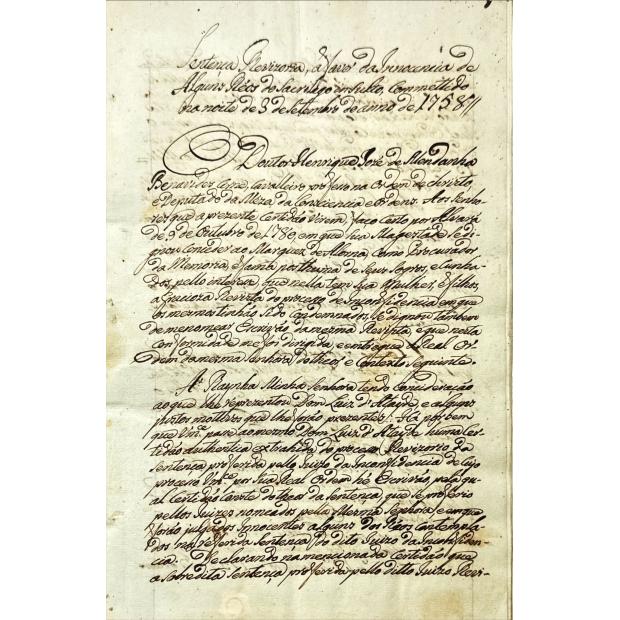 Sentença Revizoria, a favor da Innocencia de
Alguns Réos do Sacrilego insulto, commettido
na noite de 3 de Setembro do anno de 1758//
O Doutor Henrique José de Mendanha
Benavides Cirne, Cavalleiro professo na Ordem de Christo,
e Deputado da Meza da Consciencia e Ordens. Aos Senho-
res que a prezente Certidão virem, faço Certo por Alvará
de 9 de Outubro de 1780, em que Sua Magestade Se di-
gnou Conceder ao Marquez de Alorna Como Procurador
da Memoria, e fama posthuma de Seus Sogros, e Cunha-
dos, pello interesse, que nella tem Sua Mulher, e filhos,
a Graciosa Revista do processo de Inconfidencia em que
os mesmos tinhão Sido Condemnados, Se dignou tambem
de me nomear Escrivão da mesma Revista, e que nesta
Conformidade me foi dirigida e entregue a Real Or-
dem da mesma Senhora do theor, e Contexto Seguinte.
A Raynha Minha Senhora tendo Consideração
ao que lhe reprezentou Dom Luiz d'Ataide, e a alguns
justos motivos que lhe forão prezentes: Há por bem
que Vm.ce passe ao mesmo Dom Luiz d'Ataide huma Cer-
tidão authentica extrahida do processo Revizorio da
Sentença proferida pello Juizo da Inconfidencia de Cujo
processo Vm.ce por Sua Real Ordem he Escrivão, pela qu-
al Certidão Conste do theor da Sentença, que Se proferio
pellos Juizes nomeados pella Mesma Senhora, e em que
forão julgados Innocentes alguns dos Réos Contempla-
dos na referida Sentença do dito Juizo da Inconfiden-
cia. Declarando na mencionada Certidão, que
a Sobredita Sentença, proferida pello ditto Juizo Revi-